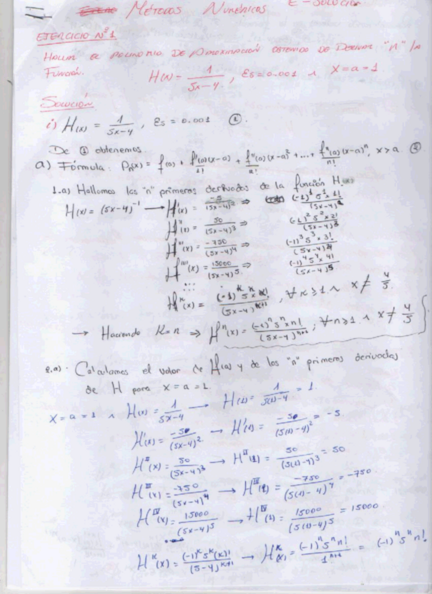 Métodos Numéricos E-Solución
EJERCICIO Nº1
Hallar el Polinomio de Aproximación de "n"
Función. H(x) = 1/(5x-4), Es=0.001 ∧ X=a=1.
Solución
i) H(x) = 1/(5x-4), Es=0.001 ①.
De ① obtenemos
a) Fórmula: Pn(x) = f(a) + f'(a)(x-a)/1! + f''(a)(x-a)²/2! + ... + fⁿ(a)(x-a)ⁿ/n!, x>a ②
1.a) Hallamos las "n" primeras derivadas de la función H(x)
H(x) = (5x-4)⁻¹ → H'(x) = -5/(5x-4)² ⇒ (-1)¹5¹×1!/(5x-4)²
H''(x) = 50/(5x-4)³ ⇒ (-1)²5²×2!/(5x-4)³
H'''(x) = -750/(5x-4)⁴ ⇒ (-1)³5³×3!/(5x-4)⁴
H''''(x) = 15000/(5x-4)⁵ ⇒ (-1)⁴5⁴×4!/(5x-4)⁵
Hᴷ(x) = (-1)ᴷ5ᴷ×K!/(5x-4)ᴷ⁺¹, ∀K≥1 ∧ x≠4/5
→ Haciendo K=n ⇒ Hⁿ(x) = (-1)ⁿ5ⁿ×n!/(5x-4)ⁿ⁺¹, ∀n≥1 ∧ x≠4/5
2.a) Calculamos el valor de H(x) y de las "n" primeras derivadas
de H para x=a=1
X=a=1 ∧ H(x) = 1/(5x-4) → H(1) = 1/(5(1)-4) = 1
H'(x) = -5/(5x-4)² → H'(1) = -5/(5(1)-4)² = -5
H''(x) = 50/(5x-4)³ → H''(1) = 50/(5(1)-4)³ = 50
H'''(x) = -750/(5x-4)⁴ → H'''(1) = -750/(5(1)-4)⁴ = -750
Hᴵⱽ(x) = 15000/(5x-4)⁵ → Hᴵⱽ(1) = 15000/(5(1)-4)⁵ = 15000
Hᴷ(x) = (-1)ᴷ5ᴷ(K)!/(5-4)ᴷ⁺¹ → Hᴷ(x) = (-1)ⁿ5ⁿn!/1ᴷ⁺¹ = (-1)ⁿ5ⁿn!